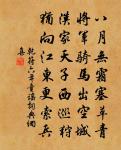 八月無霜塞草青
將軍騎馬出空城
漢家天子西巡狩
猶向江東更索兵
乾符六年童謠詞典網
集